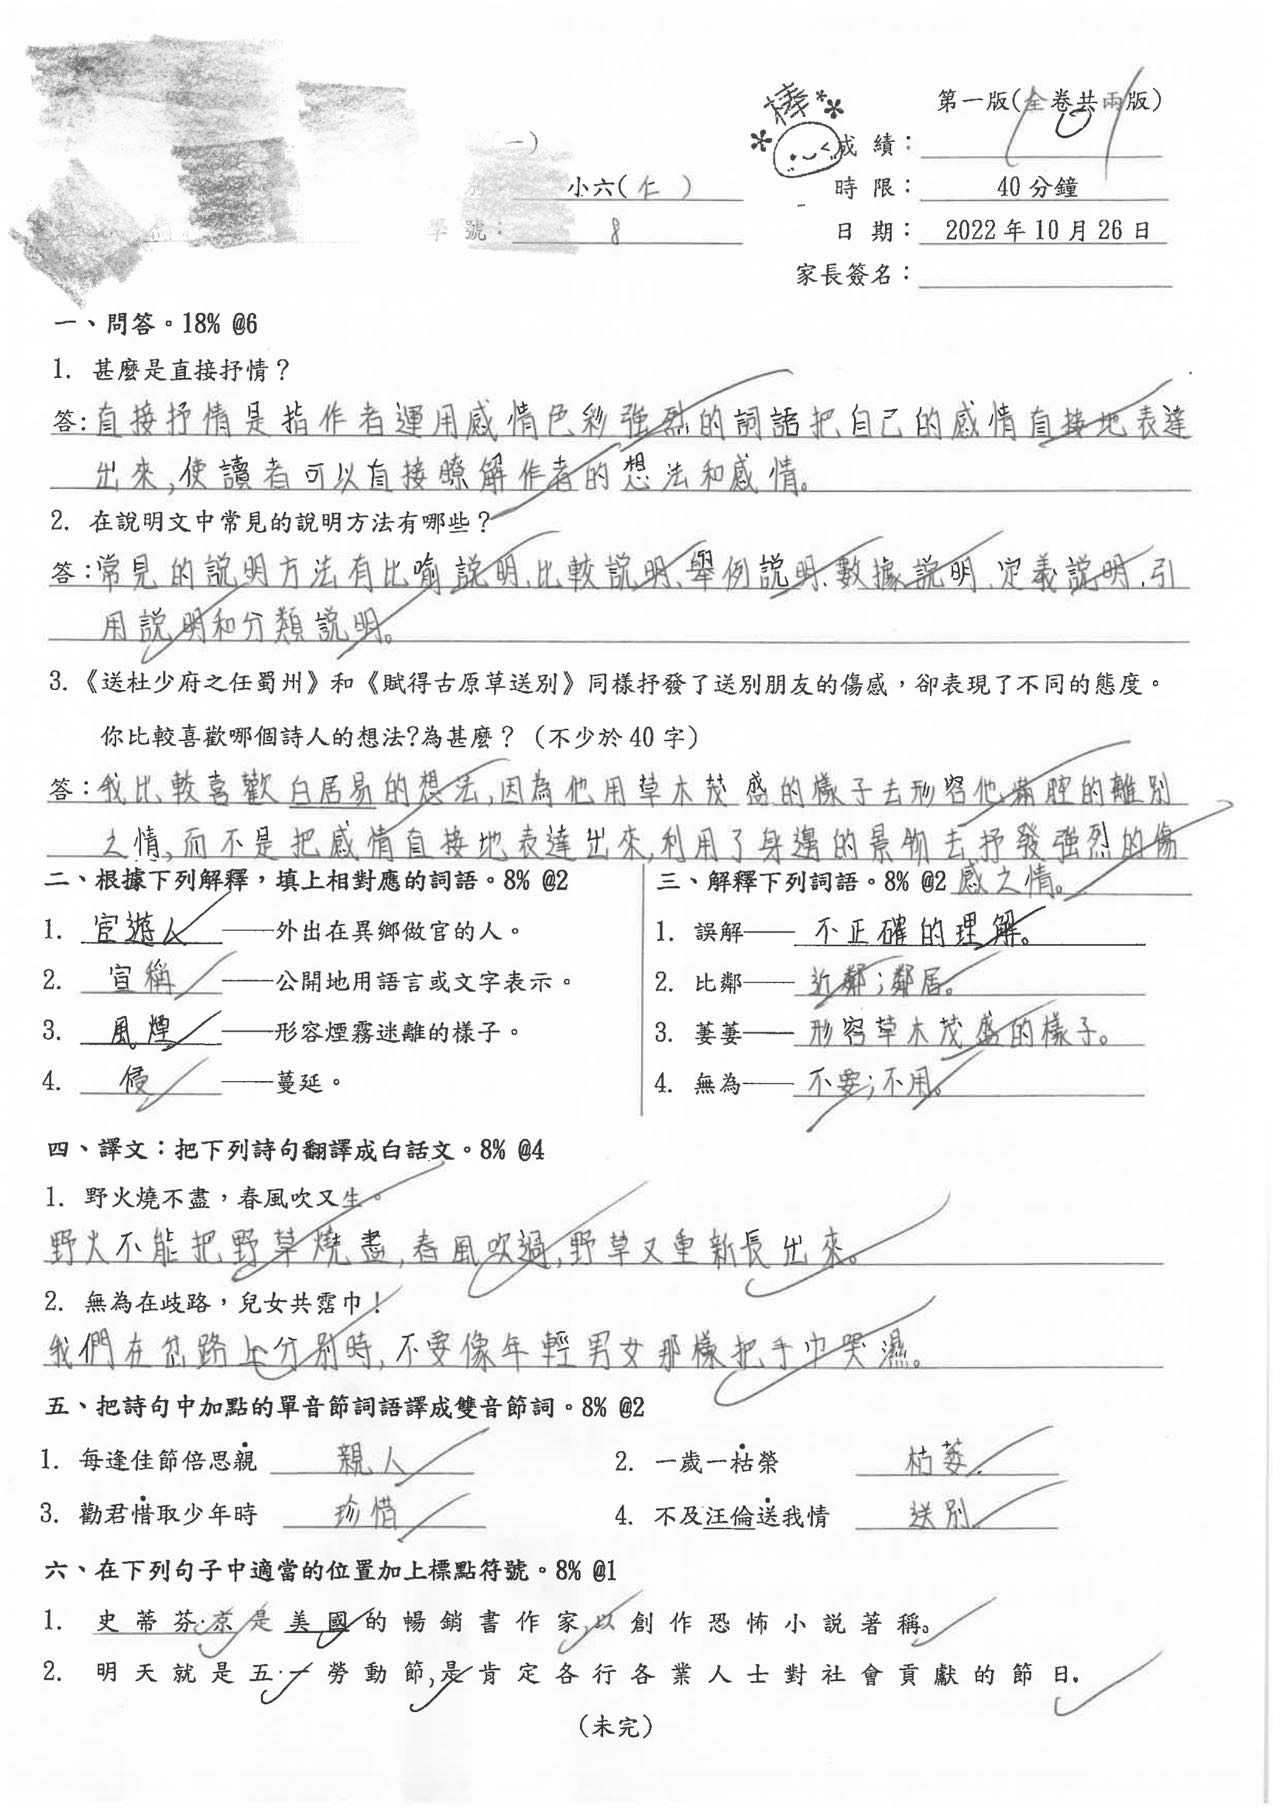 棒
第一版(全卷共兩版)
(一)
成績：100
小六(仁)
時限：40分鐘
學號：8
日期：2022年10月26日
家長簽名：
一、問答。18% @6
1. 甚麼是直接抒情？
答:直接抒情是指作者運用感情色彩強烈的詞語把自己的感情直接地表達
出來,使讀者可以直接瞭解作者的想法和感情。
2. 在說明文中常見的說明方法有哪些？
答:常見的說明方法有比喻說明、比較說明、舉例說明、數據說明、定義說明、引
用說明和分類說明。
3.《送杜少府之任蜀州》和《賦得古原草送別》同樣抒發了送別朋友的傷感，卻表現了不同的態度。
你比較喜歡哪個詩人的想法?為甚麼？（不少於40字）
答:我比較喜歡白居易的想法,因為他用草木茂盛的樣子去形容他滿腔的離別
之情,而不是把感情直接地表達出來,利用了身邊的景物去抒發強烈的傷
感之情。
二、根據下列解釋，填上相對應的詞語。8% @2
1. 宦遊人——外出在異鄉做官的人。
2. 宣稱——公開地用語言或文字表示。
3. 風煙——形容煙霧迷離的樣子。
4. 侵——蔓延。
三、解釋下列詞語。8% @2
1. 誤解——不正確的理解。
2. 比鄰——近鄰;鄰居。
3. 萋萋——形容草木茂盛的樣子。
4. 無為——不要;不用。
四、譯文：把下列詩句翻譯成白話文。8% @4
1. 野火燒不盡，春風吹又生。
野火不能把野草燒盡,春風吹過,野草又重新長出來。
2. 無為在歧路，兒女共霑巾！
我們在岔路上分別時,不要像年輕男女那樣把手巾哭濕。
五、把詩句中加點的單音節詞語譯成雙音節詞。8% @2
1. 每逢佳節倍思親 親人
2. 一歲一枯榮 枯萎
3. 勸君惜取少年時 珍惜
4. 不及汪倫送我情 送別
六、在下列句子中適當的位置加上標點符號。8% @1
1. 史蒂芬·京是美國的暢銷書作家,以創作恐怖小說著稱。
2. 明天就是五·一勞動節,是肯定各行各業人士對社會貢獻的節日.
(未完)